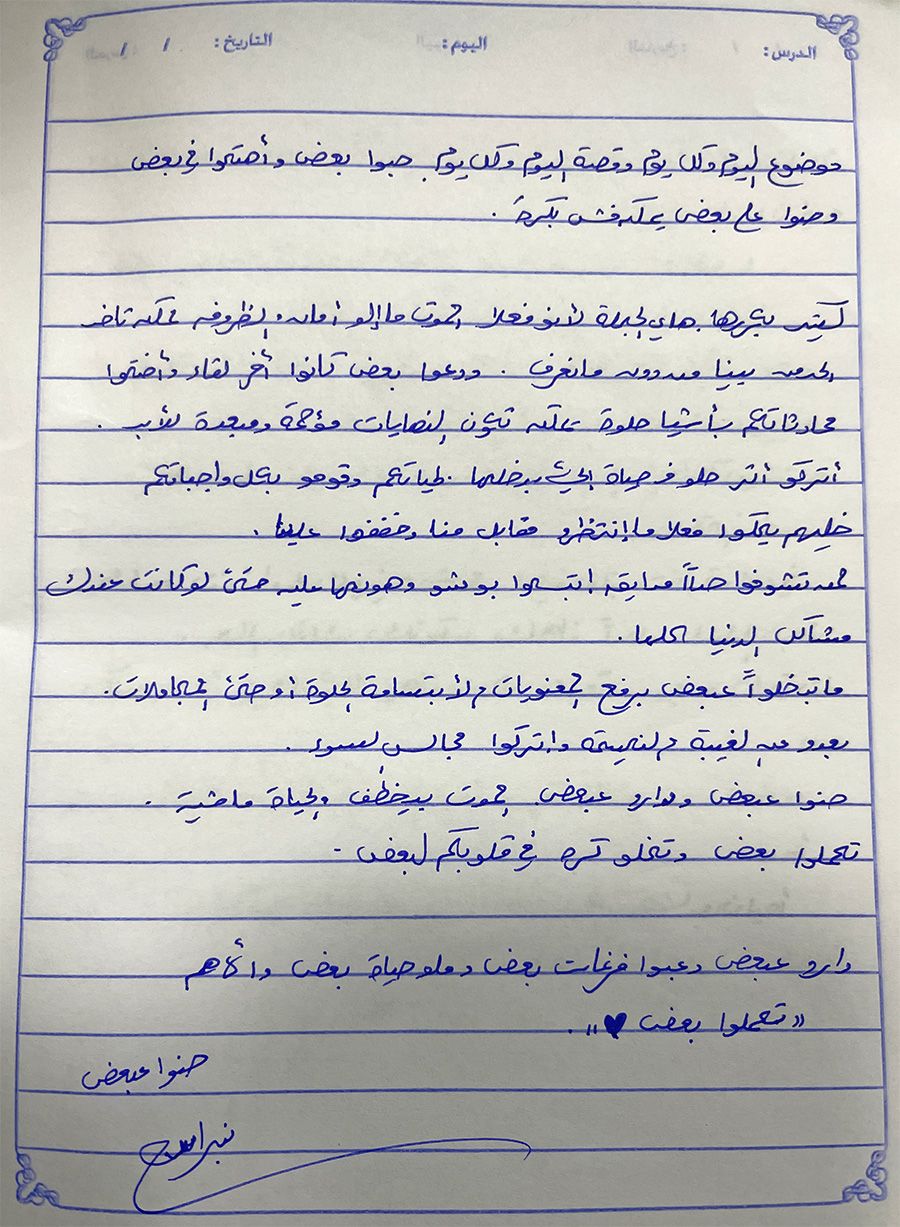 الدرس: اليوم: التاريخ: / /
موضوع اليوم وكل يوم وقصة اليوم وكل يوم حبوا بعض وأهتموا في بعض
وحنوا على بعض يمكن فش بكرة.
كيتير بكررها هاي الجملة لأنو فعلا الموت ما إلو أمان والظروف ممكن تاخد
الحد من بينا من دون ما نعرف. ودعوا بعض كانوا أخر لقاء وأختموا
محادثاتكم بأشيا حلوة يمكن تكون النهايات مؤلمة ومبعدة للأبد.
أتركو أثر حلو في حياة الي بدخلها لحياتكم وقومو بكل واجباتكم
خليهم يحكوا فعلا ما إنتظرو مقابل منا وخففوا علينا.
لمن تشوفوا حدا مدايقه ابتسموا بوشو وهونوها عليه حتى لو كانت عندك
مشاكل الدنيا كلها.
ما تبخلوا عبعض برفع المعنويات والأبتسامة الحلوة أو حتى المجاملات.
بعدو عن الغيبة والنميمة واتركوا مجالس السوء.
حنوا عبعض ودارو عبعض الموت بيخطف والحياة ماشية.
تحملوا بعض وتخلو كره في قلوبكم لبعض.
دارو عبعض وعبوا فرغات بعض وملو حياة بعض والأهم
"تحملوا بعض ♥".
حنوا عبعض